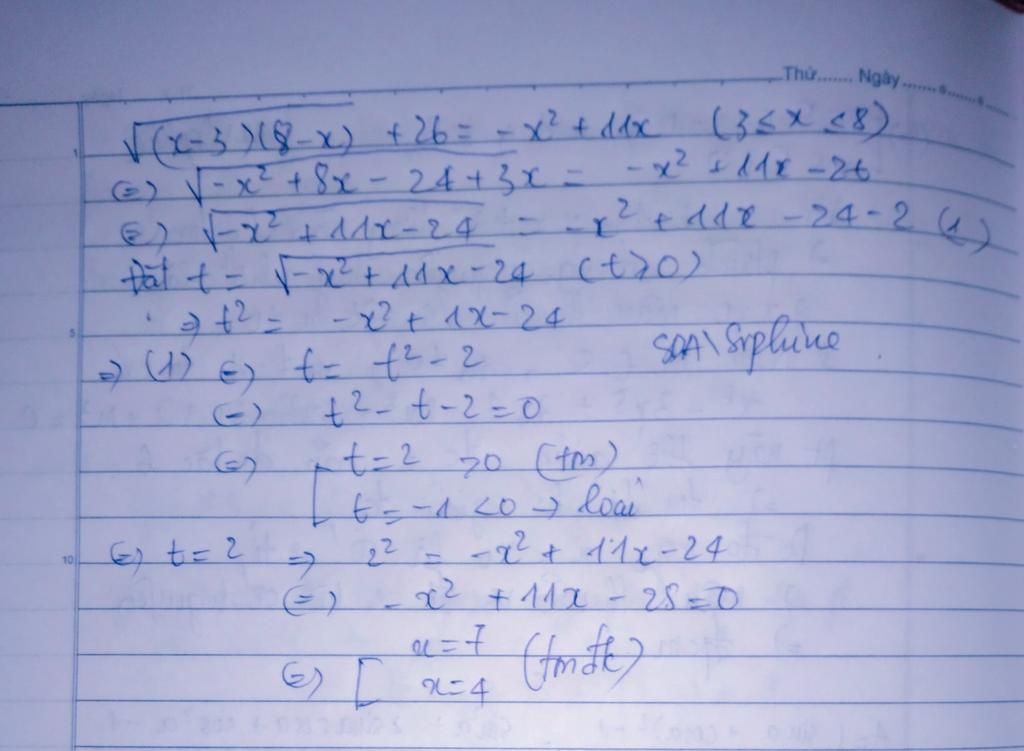 Thứ....... Ngày.......
√(x-3)(8-x) + 26 = -x² + 11x (3 ≤ x ≤ 8)
(=) √-x² + 8x - 24 + 3x = -x² + 11x - 26
(=) √-x² + 11x - 24 = -x² + 11x - 24 - 2 (1)
Đặt t = √-x² + 11x - 24 (t ≥ 0)
⇒ t² = -x² + 1x - 24
⇒ (1) (=) t = t² - 2
(=) t² - t - 2 = 0
(=) [ t = 2 > 0 (tm)
t = -1 < 0 → loại
(=) t = 2 ⇒ 2² = -x² + 11x - 24
(=) -x² + 11x - 28 = 0
(=) [ x = 7
x = 4 (tmđk)
1
5
10